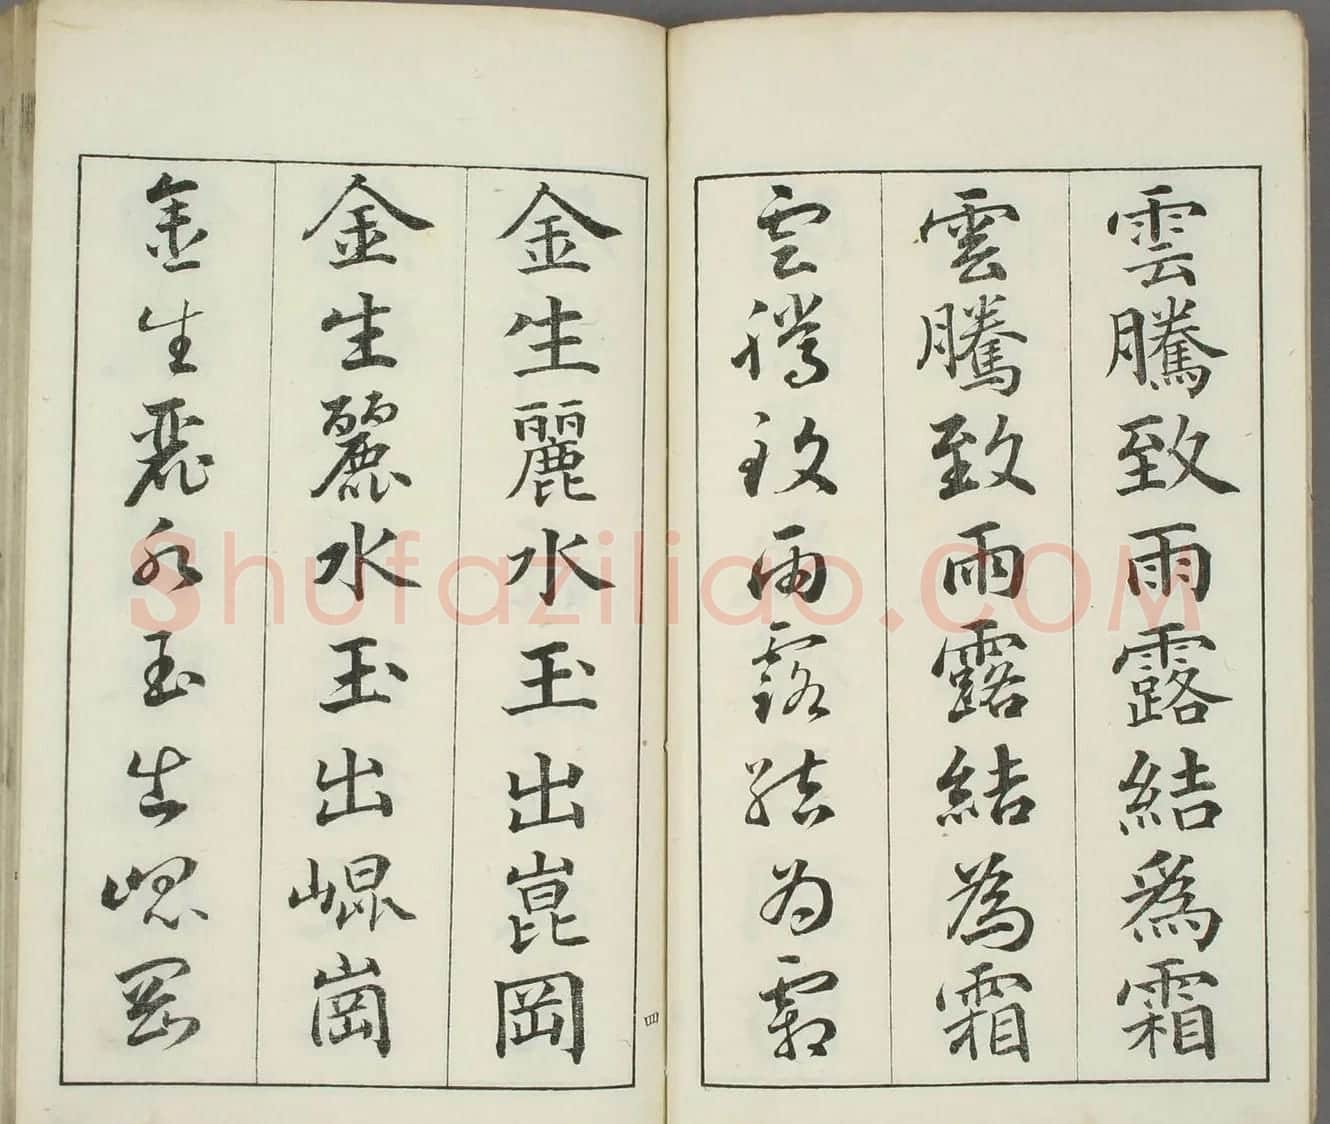 雲騰致雨露結爲霜
雲騰致雨露結為霜
雲騰致雨露結為霜
金生麗水玉出崑岡
金生麗水玉出崐崗
金生麗水玉出崐岡
四
Shufaziliao.COM